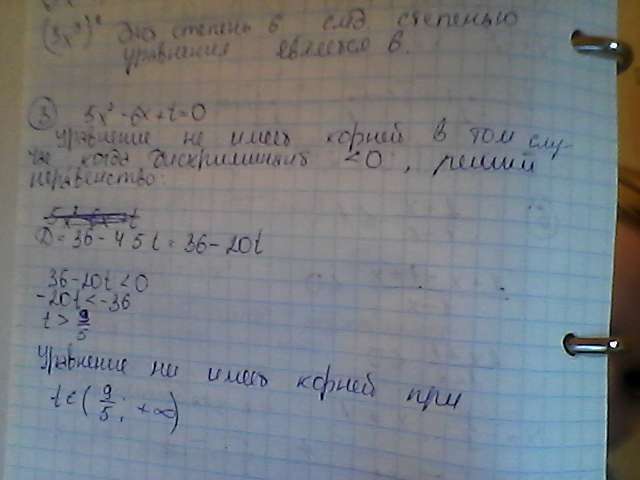 (3x³)² это степень 6 след степенью
уравнения является 6.
③ 5x² - 6x + t = 0
уравнение не имеет корней в том слу-
чае когда дискриминант < 0, решим
неравенство:
5x² - 6x + t
D = 36 - 4 5 t = 36 - 20t
36 - 20t < 0
-20t < -36
t > 9/5
Уравнение не имеет корней при
t ∈ (9/5; +∞)